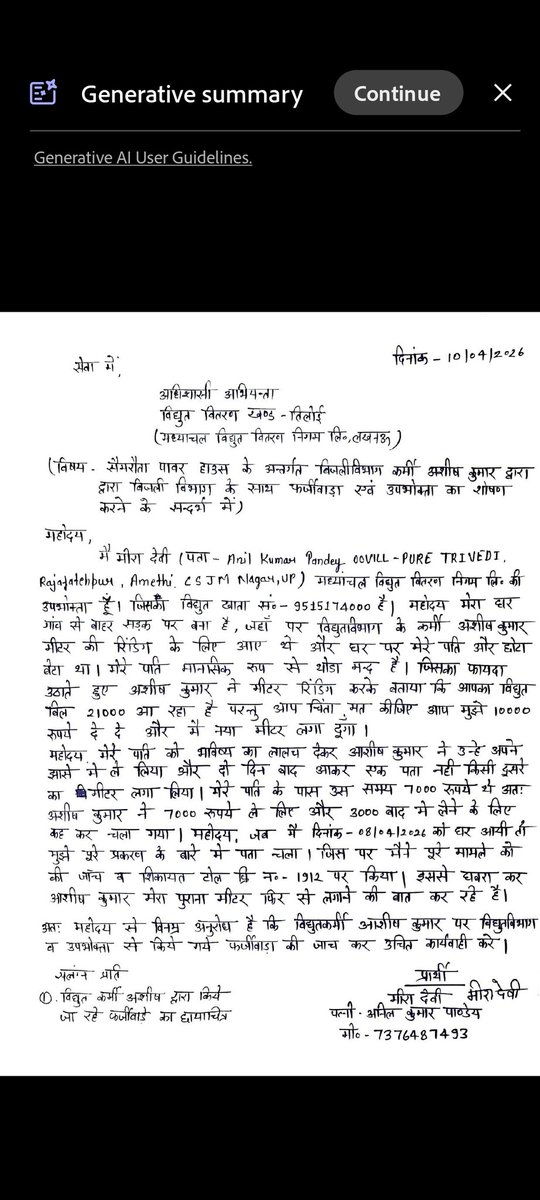 Generative summary
Continue
Generative AI User Guidelines.
दिनांक - 10/04/2026
सेवा में,
अधिशासी अभियन्ता
विद्युत वितरण खण्ड - तिलोई
(मध्याचल विद्युत वितरण निगम लि०, लखनऊ)
(विषय - सेमरौता पावर हाउस के अन्तर्गत बिजलीविभाग कर्मी अशीष कुमार द्वारा
द्वारा बिजली विभाग के साथ फर्जीवाड़ा एवं उपभोक्ता का शोषण
करने के सन्दर्भ में)
महोदय,
मै मीरा देवी (पता - Anil Kumar Pandey 00VILL - PURE TRIVEDI,
Rajafatehpur, Amethi, CSJM Nagar, UP) मध्याचल विद्युत वितरण निगम लि० की
उपभोक्ता हूँ। जिसकी विद्युत खाता सं० - 9515174000 है। महोदय मेरा घर
गांव से बाहर सड़क पर बना है, जहाँ पर विद्युतविभाग के कर्मी अशीष कुमार
मीटर की रिडिंग के लिए आए थे और घर पर मेरे पति और छोटा
बेटा था। मेरे पति मानसिक रुप से थोडा मन्द है। जिसका फायदा
उठाते हुए अशीष कुमार ने मीटर रिडिंग करके बताया कि आपका विद्युत
बिल 21000 आ रहा है परन्तु आप चिंता मत कीजिए आप मुझे 10000
रुपये दे दे और मैं नया मीटर लगा दूँगा।
महोदय मेरे पति को भविष्य का लालच देकर आशीष कुमार ने उन्हे अपने
झासे मे ले लिया और दो दिन बाद आकर एक पता नही किसी दूसरे
का मीटर लगा लिया। मेरे पति के पास उस समय 7000 रुपये थे अतः
अशीष कुमार ने 7000 रुपये ले लिए और 3000 बाद मे लेने के लिए
कह कर चला गया। महोदय, जब मैं दिनांक - 08/04/2026 को घर आयी तो
मुझे पूरे प्रकरण के बारे मे पता चला। जिस पर मैने पूरे मामले की
की जाँच व शिकायत टोल फ्री न० - 1912 पर किया। इससे घबरा कर
आशीष कुमार मेरा पुराना मीटर फिर से लगाने की बात कर रहे है।
अतः महोदय से विनम्र अनुरोध है कि विद्युतकर्मी आशीष कुमार पर विद्युतविभाग
व उपभोक्ता से किये गये फर्जीवाड़ा की जाच कर उचित कार्यवाही करे।
संलग्न प्रति
① विद्युत कर्मी अशीष द्वारा किये
जा रहे फर्जीवाड़े का छायाचित्र
प्रार्थी
मीरा देवी मीरा देवी
पत्नी - अनिल कुमार पाण्डेय
मो० - 7376487493